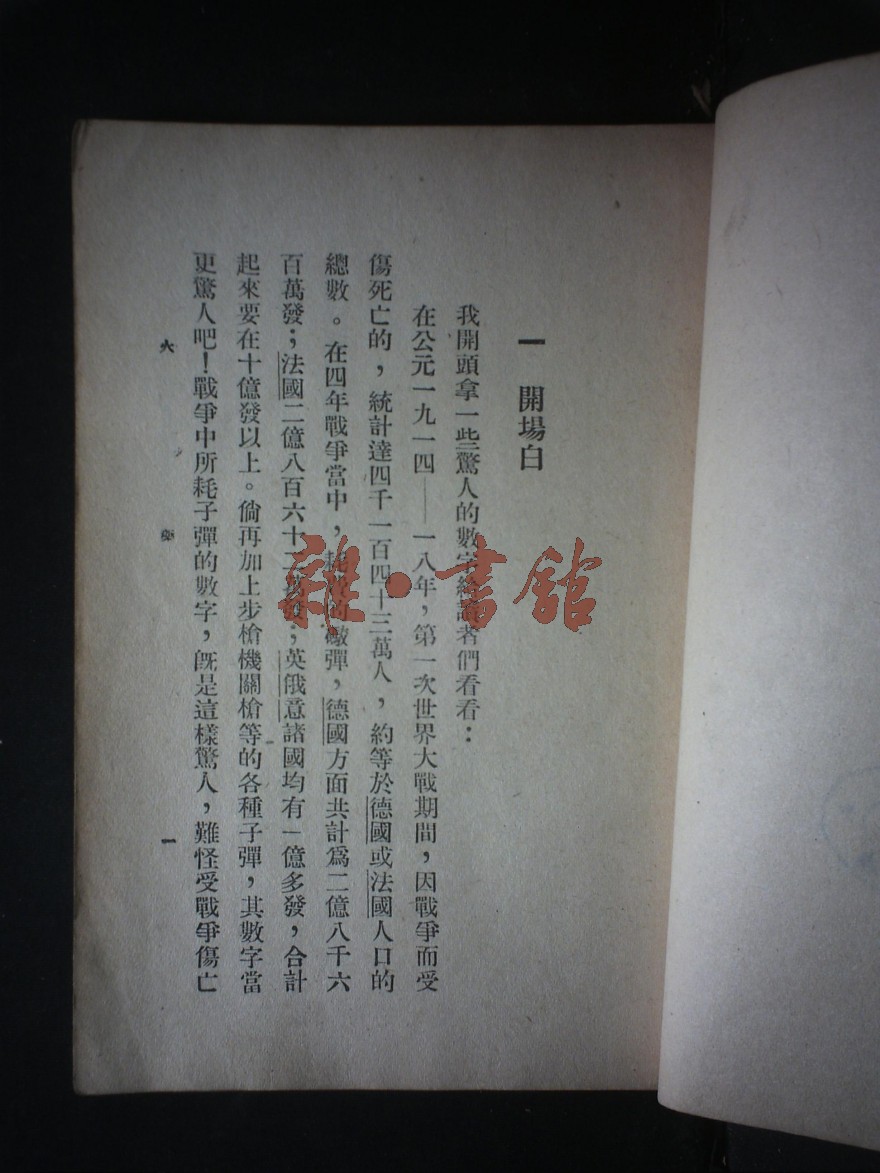 一　開場白
我開頭拿一些驚人的數字給讀者們看看：
在公元一九一四——一八年，第一次世界大戰期間，因戰爭而受
傷死亡的，統計達四千一百四十三萬人，約等於德國或法國人口的
總數。在四年戰爭當中，耗費的礮彈，德國方面共計爲二億八千六
百萬發；法國二億八百六十二萬發；英俄意諸國均有一億多發，合計
起來要在十億發以上。倘再加上步槍機關槍等的各種子彈，其數字當
更驚人吧！戰爭中所耗子彈的數字，旣是這樣驚人，難怪受戰爭傷亡
火藥　一
雜·書館